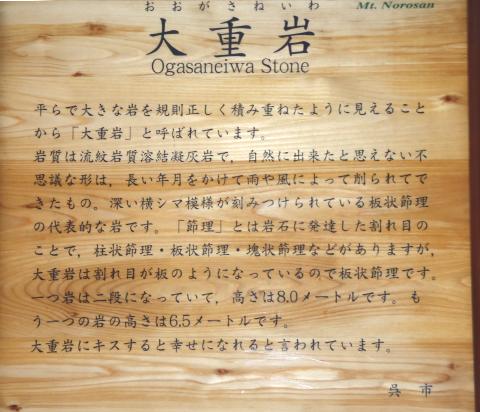 Mt. Norosan
おおがさねいわ
大重岩
Ogasaneiwa Stone
平らで大きな岩を規則正しく積み重ねたように見えること
から「大重岩」と呼ばれています。
岩質は流紋岩質溶結凝灰岩で，自然に出来たと思えない不
思議な形は，長い年月をかけて雨や風によって削られてで
きたもの。深い横シマ模様が刻みつけられている板状節理
の代表的な岩です。「節理」とは岩石に発達した割れ目の
ことで，柱状節理・板状節理・塊状節理などがありますが，
大重岩は割れ目が板のようになっているので板状節理です。
一つ岩は二段になっていて，高さは8.0メートルです。も
う一つの岩の高さは6.5メートルです。
大重岩にキスすると幸せになれると言われています。
呉 市